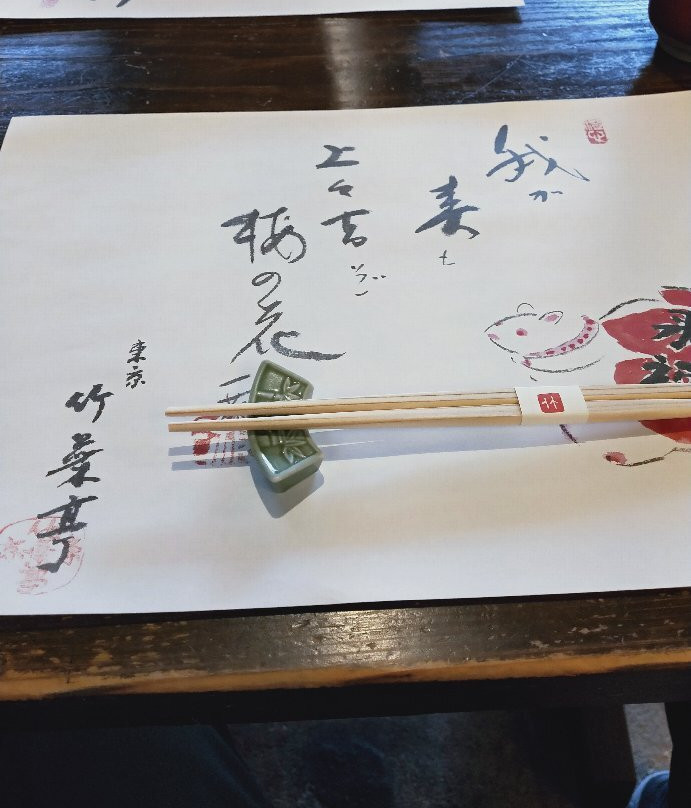 我が
春も
上々吉ぞ
梅の花
一
東京
竹葉亭
竹